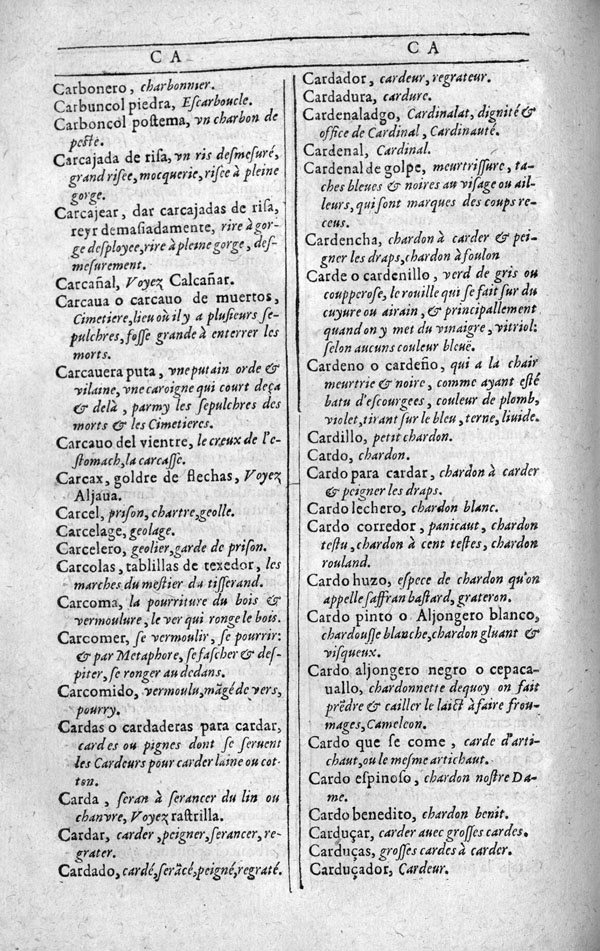 CA
Carbonero, charbonnier.
Carbuncol piedra, Eſcarboucle.
Carboncol poſtema, vn charbon de
peſte.
Carcajada de riſa, vn ris deſmeſuré,
grand riſee, mocquerie, riſee à pleine
gorge.
Carcajear, dar carcajadas de riſa,
reyr demaſiadamente, rire à gor-
ge deſployee, rire à pleine gorge, deſ-
meſurement.
Carcañal, Voyez Calcañar.
Carcaua o carcauo de muertos,
Cimetiere, lieu où il y a pluſieurs ſe-
pulchres, foſſe grande à enterrer les
morts.
Carcauera puta, vne putain orde &
vilaine, vne caroigne qui court deça
& delà, parmy les ſepulchres des
morts & les Cimetieres.
Carcauo del vientre, le creux de l'e-
ſtomach, la carcaſſe.
Carcax, goldre de flechas, Voyez
Aljaua.
Carcel, priſon, chartre, geolle.
Carcelage, geolage.
Carcelero, geolier, garde de priſon.
Carcolas, tablillas de texedor, les
marches du meſtier du tiſſerand.
Carcoma, la pourriture du bois &
vermoulure, le ver qui ronge le bois.
Carcomer, ſe vermoulir, ſe pourrir:
& par Metaphore, ſe faſcher & deſ-
piter, ſe ronger au dedans.
Carcomido, vermoulu, mãgé de vers,
pourry.
Cardas o cardaderas para cardar,
cardes ou pignes dont ſe ſeruent
les Cardeurs pour carder laine ou cot-
ton.
Carda, ſeran à ſerancer du lin ou
chanvre, Voyez raſtrilla.
Cardar, carder, peigner, ſerancer, re-
grater.
Cardado, cardé, ſerãcé, peigné, regraté.
CA
Cardador, cardeur, regrateur.
Cardadura, cardure.
Cardenaladgo, Cardinalat, dignité &
office de Cardinal, Cardinauté.
Cardenal, Cardinal.
Cardenal de golpe, meurtriſſure, ta-
ches bleues & noires au viſage ou ail-
leurs, qui ſont marques des coups re-
ceus.
Cardencha, chardon à carder & pei-
gner les draps, chardon à foulon
Carde o cardenillo, verd de gris ou
coupperoſe, le rouille qui ſe fait ſur du
cuyure ou airain, & principallement
quand on y met du vinaigre, vitriol:
ſelon aucuns couleur bleuë.
Cardeno o cardeño, qui a la chair
meurtrie & noire, comme ayant eſté
batu d'eſcourgees, couleur de plomb,
violet, tirant ſur le bleu, terne, liuide.
Cardillo, petit chardon.
Cardo, chardon.
Cardo para cardar, chardon à carder
& peigner les draps.
Cardo lechero, chardon blanc.
Cardo corredor, panicaut, chardon
teſtu, chardon à cent teſtes, chardon
rouland.
Cardo huzo, eſpece de chardon qu'on
appelle ſaffran baſtard, grateron.
Cardo pinto o Aljongero blanco,
chardouſſe blanche, chardon gluant &
viſqueux.
Cardo aljongero negro o cepaca-
uallo, chardonnette dequoy on fait
prẽdre & cailler le laict à faire frou-
mages, Cameleon.
Cardo que ſe come, carde d'arti-
chaut, ou le meſme artichaut.
Cardo eſpinoſo, chardon noſtre Da-
me.
Cardo benedito, chardon benit.
Carduçar, carder auec groſſes cardes.
Carduças, groſſes cardes à carder.
Carduçador, Cardeur.